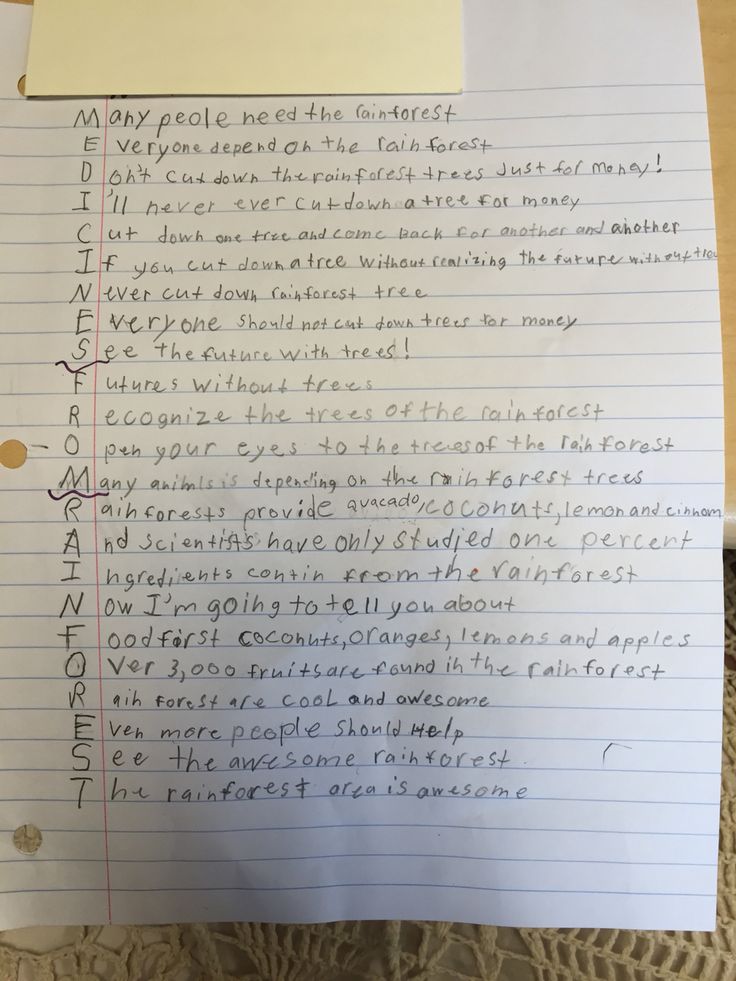 Many peole need the rainforest
Everyone depend on the rain forest
Don't cut down the rainforest trees Just for money!
I'll never ever cut down a tree for money
Cut down one tree and come Back for another and another
If you cut down a tree without realizing the future without tree
Never cut down rainforest tree
Everyone should not cut down trees for money
See the future with trees!
Futures without trees
Recognize the trees of the rainforest
Open your eyes to the trees of the rainforest
Many animls is depending on the rainforest trees
Rainforests provide avacado, coconuts, lemon and cinnam
And scientists have only studied one percent
Ingredients contin from the rainforest
Now I'm going to tell you about
Food first coconuts, oranges, lemons and apples
Over 3,000 fruits are found in the rainforest
Rain forest are cool and awesome
Even more people should Help
See the awesome rainforest.
The rainforest area is awesome